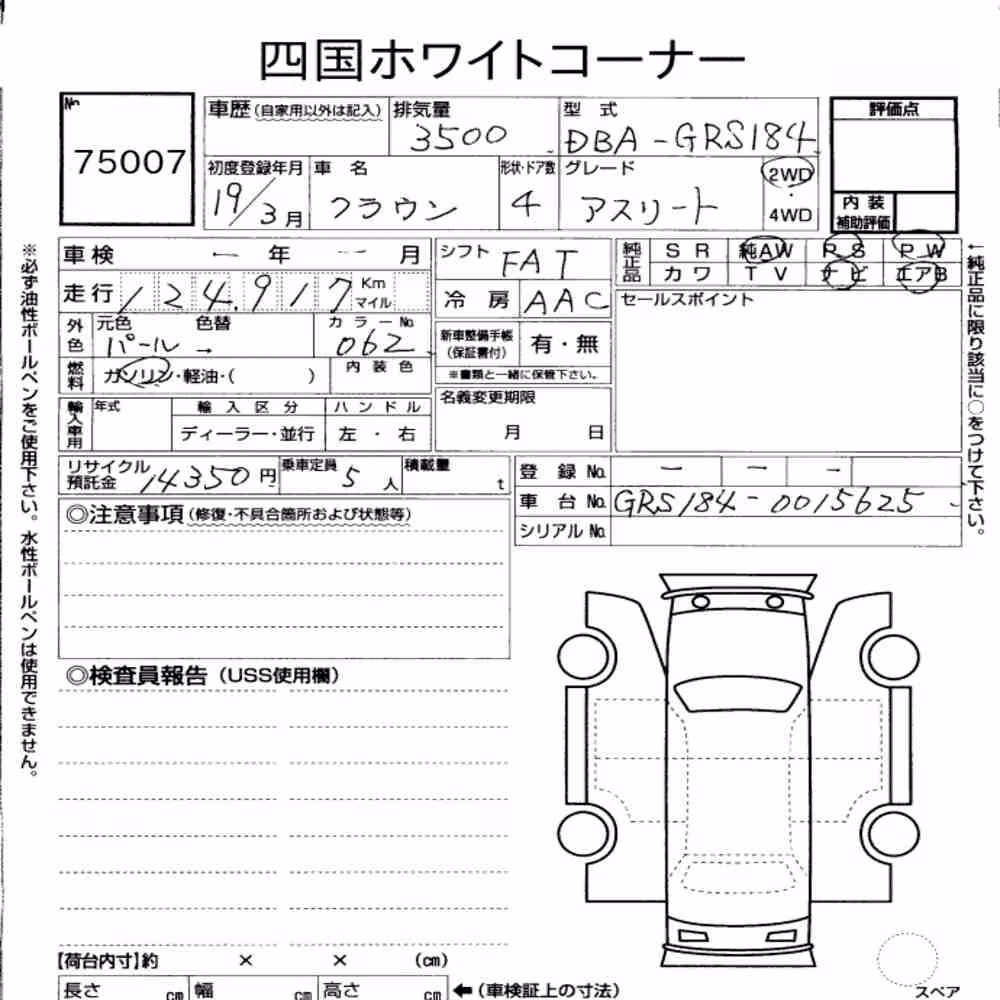 四国ホワイトコーナー
No.
75007
車歴 (自家用以外は記入)
排気量
3500
型 式
DBA-GRS184
評価点
初度登録年月
19/3月
車 名
クラウン
形状・ドア数
4
グレード
アスリート
2WD
・
4WD
内 装
補助評価
車検 ー 年 ー 月
走行 124,917 Km
マイル
シフト FAT
冷 房 AAC
純正品
SR 純AW PS PW
カワ TV ナビ エアB
セールスポイント
外色
元色 色替
パール →
カラーNo.
062
新車整備手帳
(保証書付)
有・無
※書類と一緒に保管下さい。
燃料
ガソリン・軽油・( )
内 装 色
名義変更期限
月 日
輸入車用
年式
輸 入 区 分
ディーラー・並行
ハ ン ド ル
左 ・ 右
リサイクル
預託金 14350円
乗車定員 5人
積載量 t
登 録 No. ー ー ー
車 台 No. GRS184-0015625
シリアル No.
◎注意事項 (修復・不具合箇所および状態等)
◎検査員報告 (USS使用欄)
※必ず油性ボールペンをご使用下さい。水性ボールペンは使用できません。
←純正品に限り該当に○をつけて下さい。
【荷台内寸】約 × × (cm)
長さ cm 幅 cm 高さ cm ←(車検証上の寸法)
スペア